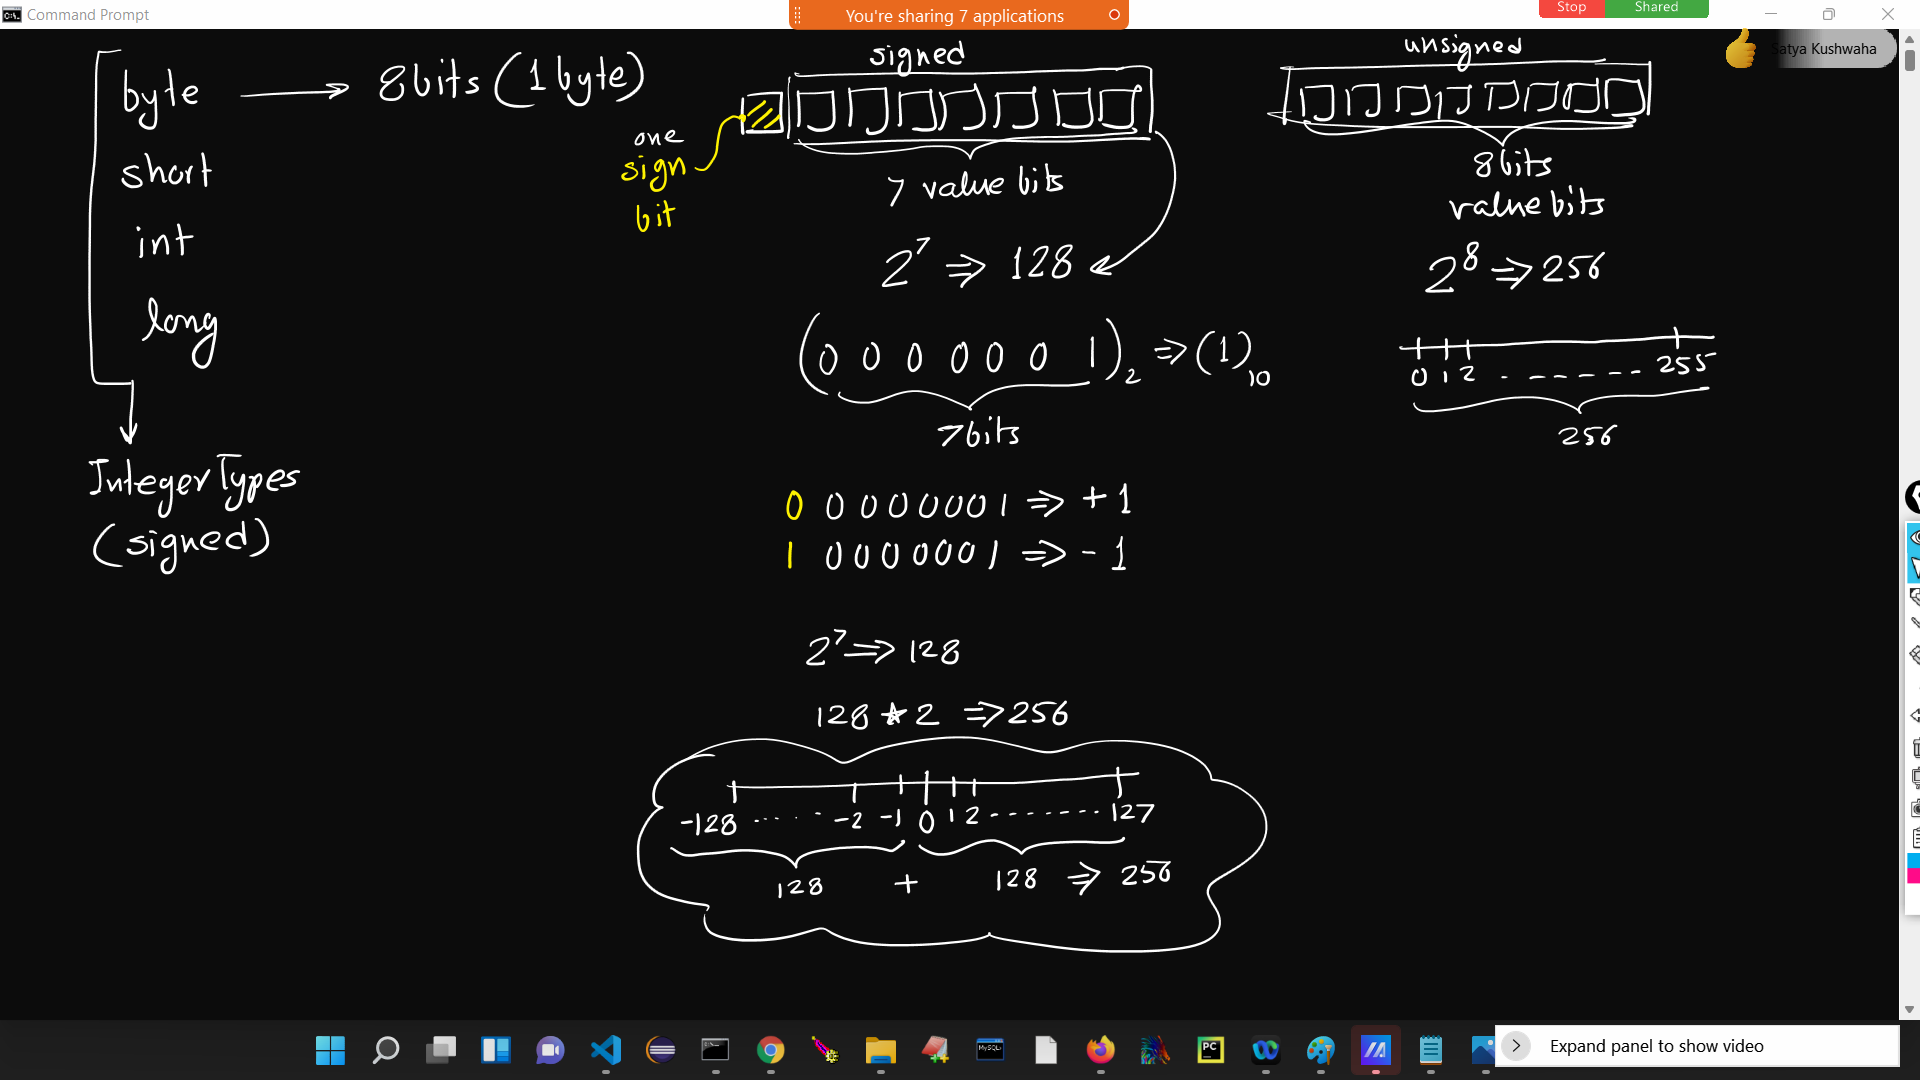 Command Prompt
You're sharing 7 applications
Stop
Shared
Satya Kushwaha
byte → 8bits (1 byte)
short
int
long
Integer Types
(signed)
signed
one
sign
bit
7 value bits
2^7 ⇒ 128
(0 0 0 0 0 0 1)₂ ⇒ (1)₁₀
7bits
0 0 0 0 0 0 0 1 ⇒ + 1
1 0 0 0 0 0 0 1 ⇒ - 1
2^7 ⇒ 128
128 * 2 ⇒ 256
-128 ...... -2 -1 0 1 2 -------- 127
128 + 128 ⇒ 256
unsigned
8bits
value bits
2^8 ⇒ 256
0 1 2 . ------ 255
256
MySQL
PC
Expand panel to show video